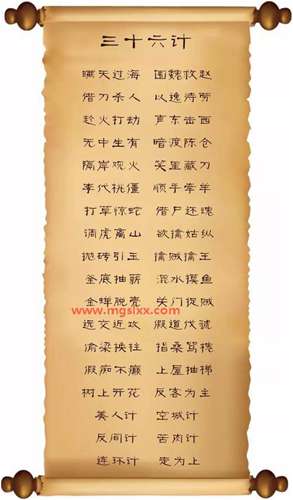 三十六计
瞒天过海 围魏救赵
借刀杀人 以逸待劳
趁火打劫 声东击西
无中生有 暗度陈仓
隔岸观火 笑里藏刀
李代桃僵 顺手牵羊
打草惊蛇 借尸还魂
调虎离山 欲擒姑纵
抛砖引玉 擒贼擒王
釜底抽薪 混水摸鱼
www.mgsixx.com
金蝉脱壳 关门捉贼
远交近攻 假道伐虢
偷梁换柱 指桑骂槐
假痴不癫 上屋抽梯
树上开花 反客为主
美人计 空城计
反间计 苦肉计
连环计 走为上